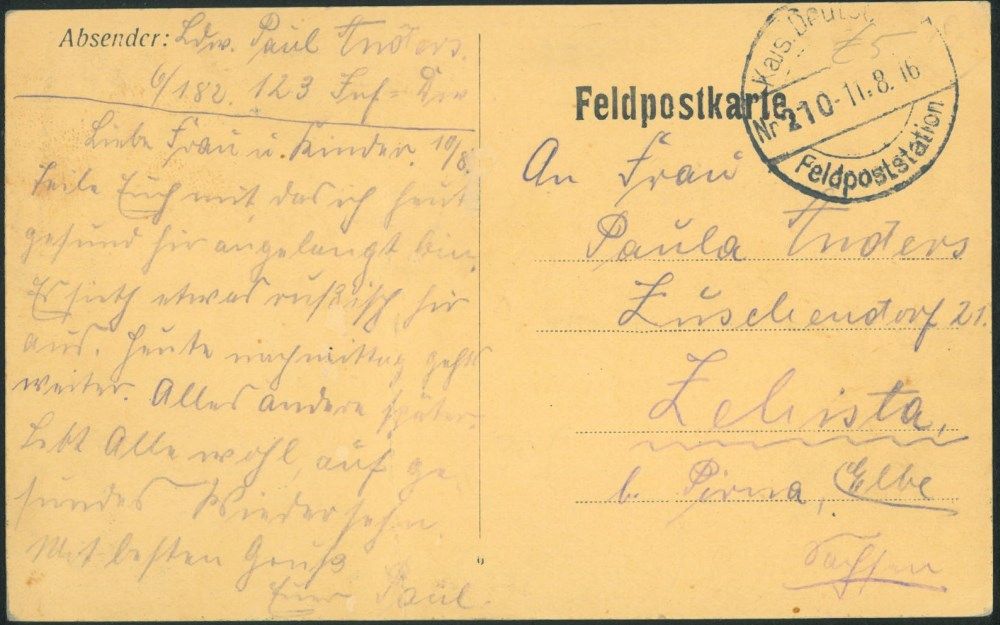 Absender: Ldw. Paul Anders.
6/182. 123 Inf=Div
Liebe Frau u. Kinder. 10/8.
Teile Euch mit das ich heut
gesund hir angelangt bin.
Es sieth etwas rußisch hir
aus. Heute nachmittag gehts
weiter. Alles andere später.
Lebt Alle wohl, auf ge
sundes Wiedersehn
Mit besten Gruß
Euer Paul.
Feldpostkarte
Kais. Deutsc
75
Nr 210 - 11.8.16
Feldpoststation
An Frau
Paula Anders
Zuschendorf 21.
Zehista,
b. Pirna, Elbe
Sachsen